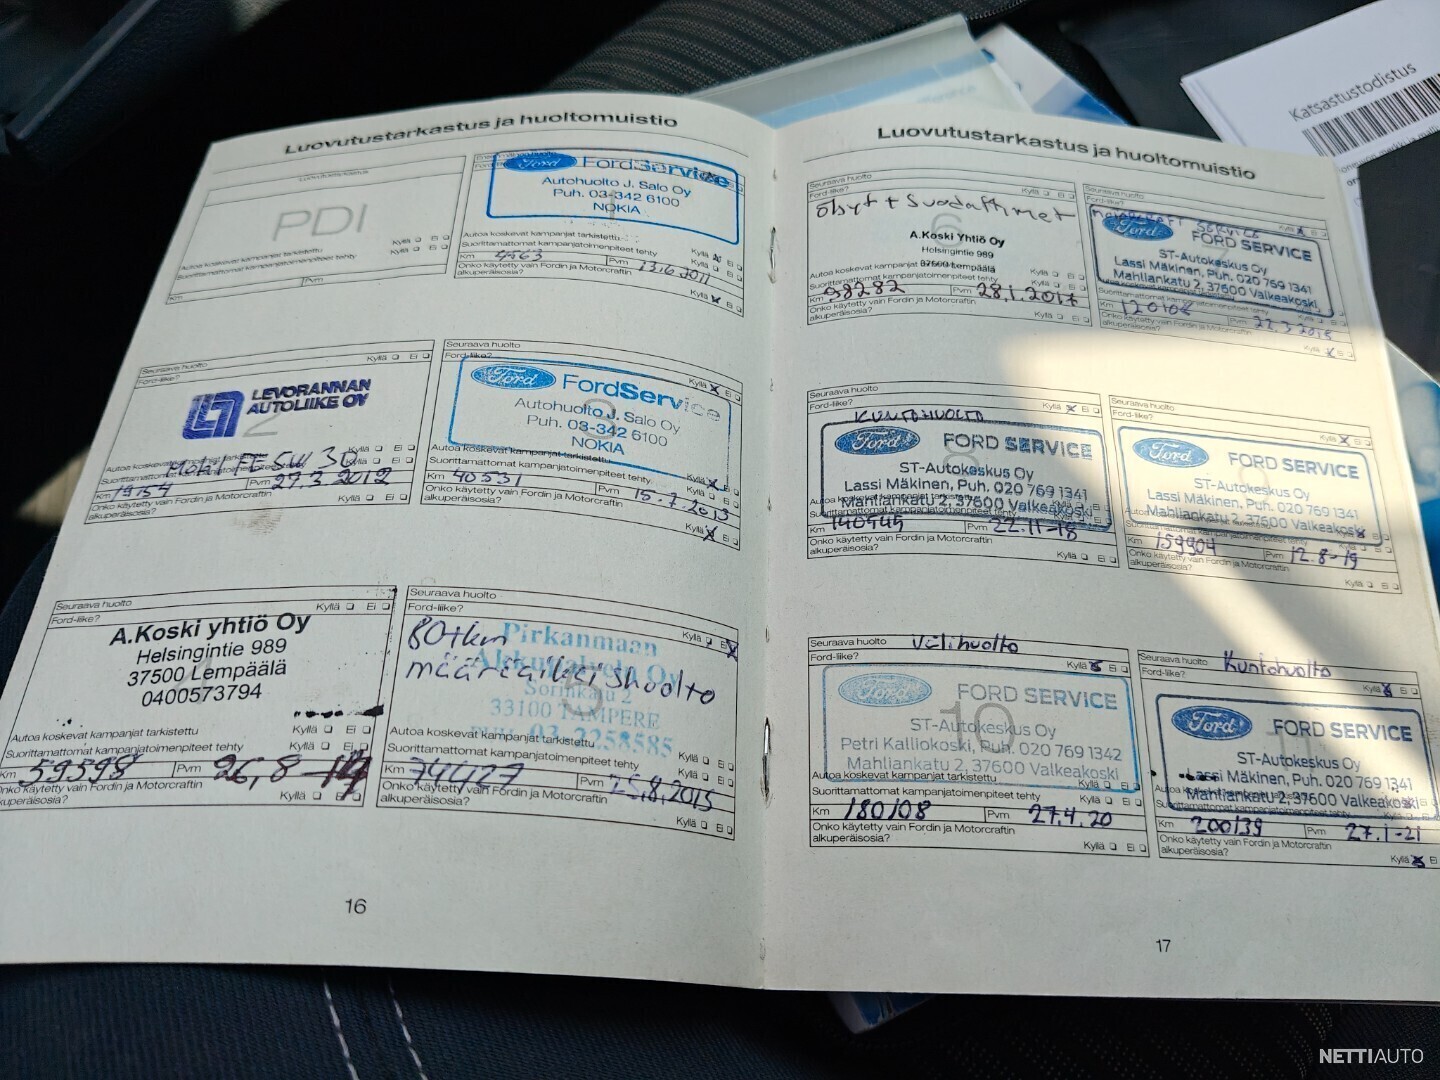 Luovutustarkastus ja huoltomuistio
Luovutustarkastus
PDI
Autoa koskevat kampanjat tarkistettu
Kyllä Ei
Suorittamattomat kampanjatoimenpiteet tehty
Kyllä Ei
Km
Pvm
Ford FordService
Autohuolto J. Salo Oy
Puh. 03-342 6100
NOKIA
1
Autoa koskevat kampanjat tarkistettu
Suorittamattomat kampanjatoimenpiteet tehty
Kyllä Ei
Km
Pvm 13.6.2011
Onko käytetty vain Fordin ja Motorcraftin
alkuperäisosia?
Kyllä Ei
Seuraava huolto
Ford-liike?
Kyllä Ei
LEVORANNAN
AUTOLIIKE OY
2
Mobil
Km
Pvm 27.3.2012
Onko käytetty vain Fordin ja Motorcraftin
alkuperäisosia?
Kyllä Ei
Seuraava huolto
Ford-liike?
Kyllä Ei
Ford FordService
Autohuolto J. Salo Oy
Puh. 03-342 6100
NOKIA
3
Autoa koskevat kampanjat tarkistettu
Suorittamattomat kampanjatoimenpiteet tehty
Km 40531
Pvm 15.7.2013
Onko käytetty vain Fordin ja Motorcraftin
alkuperäisosia?
Kyllä Ei
Seuraava huolto
Ford-liike?
Kyllä Ei
A.Koski yhtiö Oy
Helsingintie 989
37500 Lempäälä
0400573794
4
Autoa koskevat kampanjat tarkistettu
Kyllä Ei
Suorittamattomat kampanjatoimenpiteet tehty
Kyllä Ei
Km 59598
Pvm 26,8-14
Onko käytetty vain Fordin ja Motorcraftin
alkuperäisosia?
Kyllä Ei
Seuraava huolto
Ford-liike?
Kyllä Ei
80tkm
määräaikaishuolto
Pirkanmaan
Akkupalvelu Oy
Sorinkatu 2
33100 TAMPERE
Puh. 03-2258585
5
Autoa koskevat kampanjat tarkistettu
Kyllä Ei
Suorittamattomat kampanjatoimenpiteet tehty
Kyllä Ei
Km 74427
Pvm 25,8,2015
Onko käytetty vain Fordin ja Motorcraftin
alkuperäisosia?
Kyllä Ei
16
Luovutustarkastus ja huoltomuistio
Seuraava huolto
Ford-liike?
Kyllä Ei
öljyt + suodattimet
6
A.Koski Yhtiö Oy
Helsingintie 989
37500 Lempäälä
Autoa koskevat kampanjat
Kyllä Ei
Suorittamattomat kampanjatoimenpiteet tehty
Kyllä Ei
Km 98282
Pvm 28.1.2017
Onko käytetty vain Fordin ja Motorcraftin
alkuperäisosia?
Kyllä Ei
Seuraava huolto
Ford-liike?
Ford FORD SERVICE
ST-Autokeskus Oy
Lassi Mäkinen, Puh. 020 769 1341
Mahliankatu 2, 37600 Valkeakoski
Suorittamattomat kampanjatoimenpiteet tehty
Km 120108
Pvm
Onko käytetty vain Fordin ja Motorcraftin
alkuperäisosia?
Kyllä Ei
Seuraava huolto
Ford-liike?
Kyllä Ei
KUNTOHUOLTO
Ford FORD SERVICE
8
ST-Autokeskus Oy
Lassi Mäkinen, Puh. 020 769 1341
Mahliankatu 2, 37600 Valkeakoski
Km 140545
Pvm 22.11-18
Onko käytetty vain Fordin ja Motorcraftin
alkuperäisosia?
Kyllä Ei
Seuraava huolto
Ford-liike?
Kyllä Ei
Ford FORD SERVICE
ST-Autokeskus Oy
Lassi Mäkinen, Puh. 020 769 1341
Mahliankatu 2, 37600 Valkeakoski
Km 159904
Pvm 12.8-19
Onko käytetty vain Fordin ja Motorcraftin
alkuperäisosia?
Kyllä Ei
Seuraava huolto Välihuolto
Ford-liike?
Kyllä Ei
Ford FORD SERVICE
10
ST-Autokeskus Oy
Petri Kalliokoski, Puh. 020 769 1342
Mahliankatu 2, 37600 Valkeakoski
Autoa koskevat kampanjat tarkistettu
Kyllä Ei
Suorittamattomat kampanjatoimenpiteet tehty
Km 180108
Pvm 27.4.20
Onko käytetty vain Fordin ja Motorcraftin
alkuperäisosia?
Kyllä Ei
Seuraava huolto Kuntohuolto
Ford-liike?
Kyllä Ei
Ford FORD SERVICE
11
ST-Autokeskus Oy
Lassi Mäkinen, Puh. 020 769 1341
Mahliankatu 2, 37600 Valkeakoski
Km 200139
Pvm 27.1-21
Onko käytetty vain Fordin ja Motorcraftin
alkuperäisosia?
Kyllä Ei
17
Katsastustodistus
NETTIAUTO